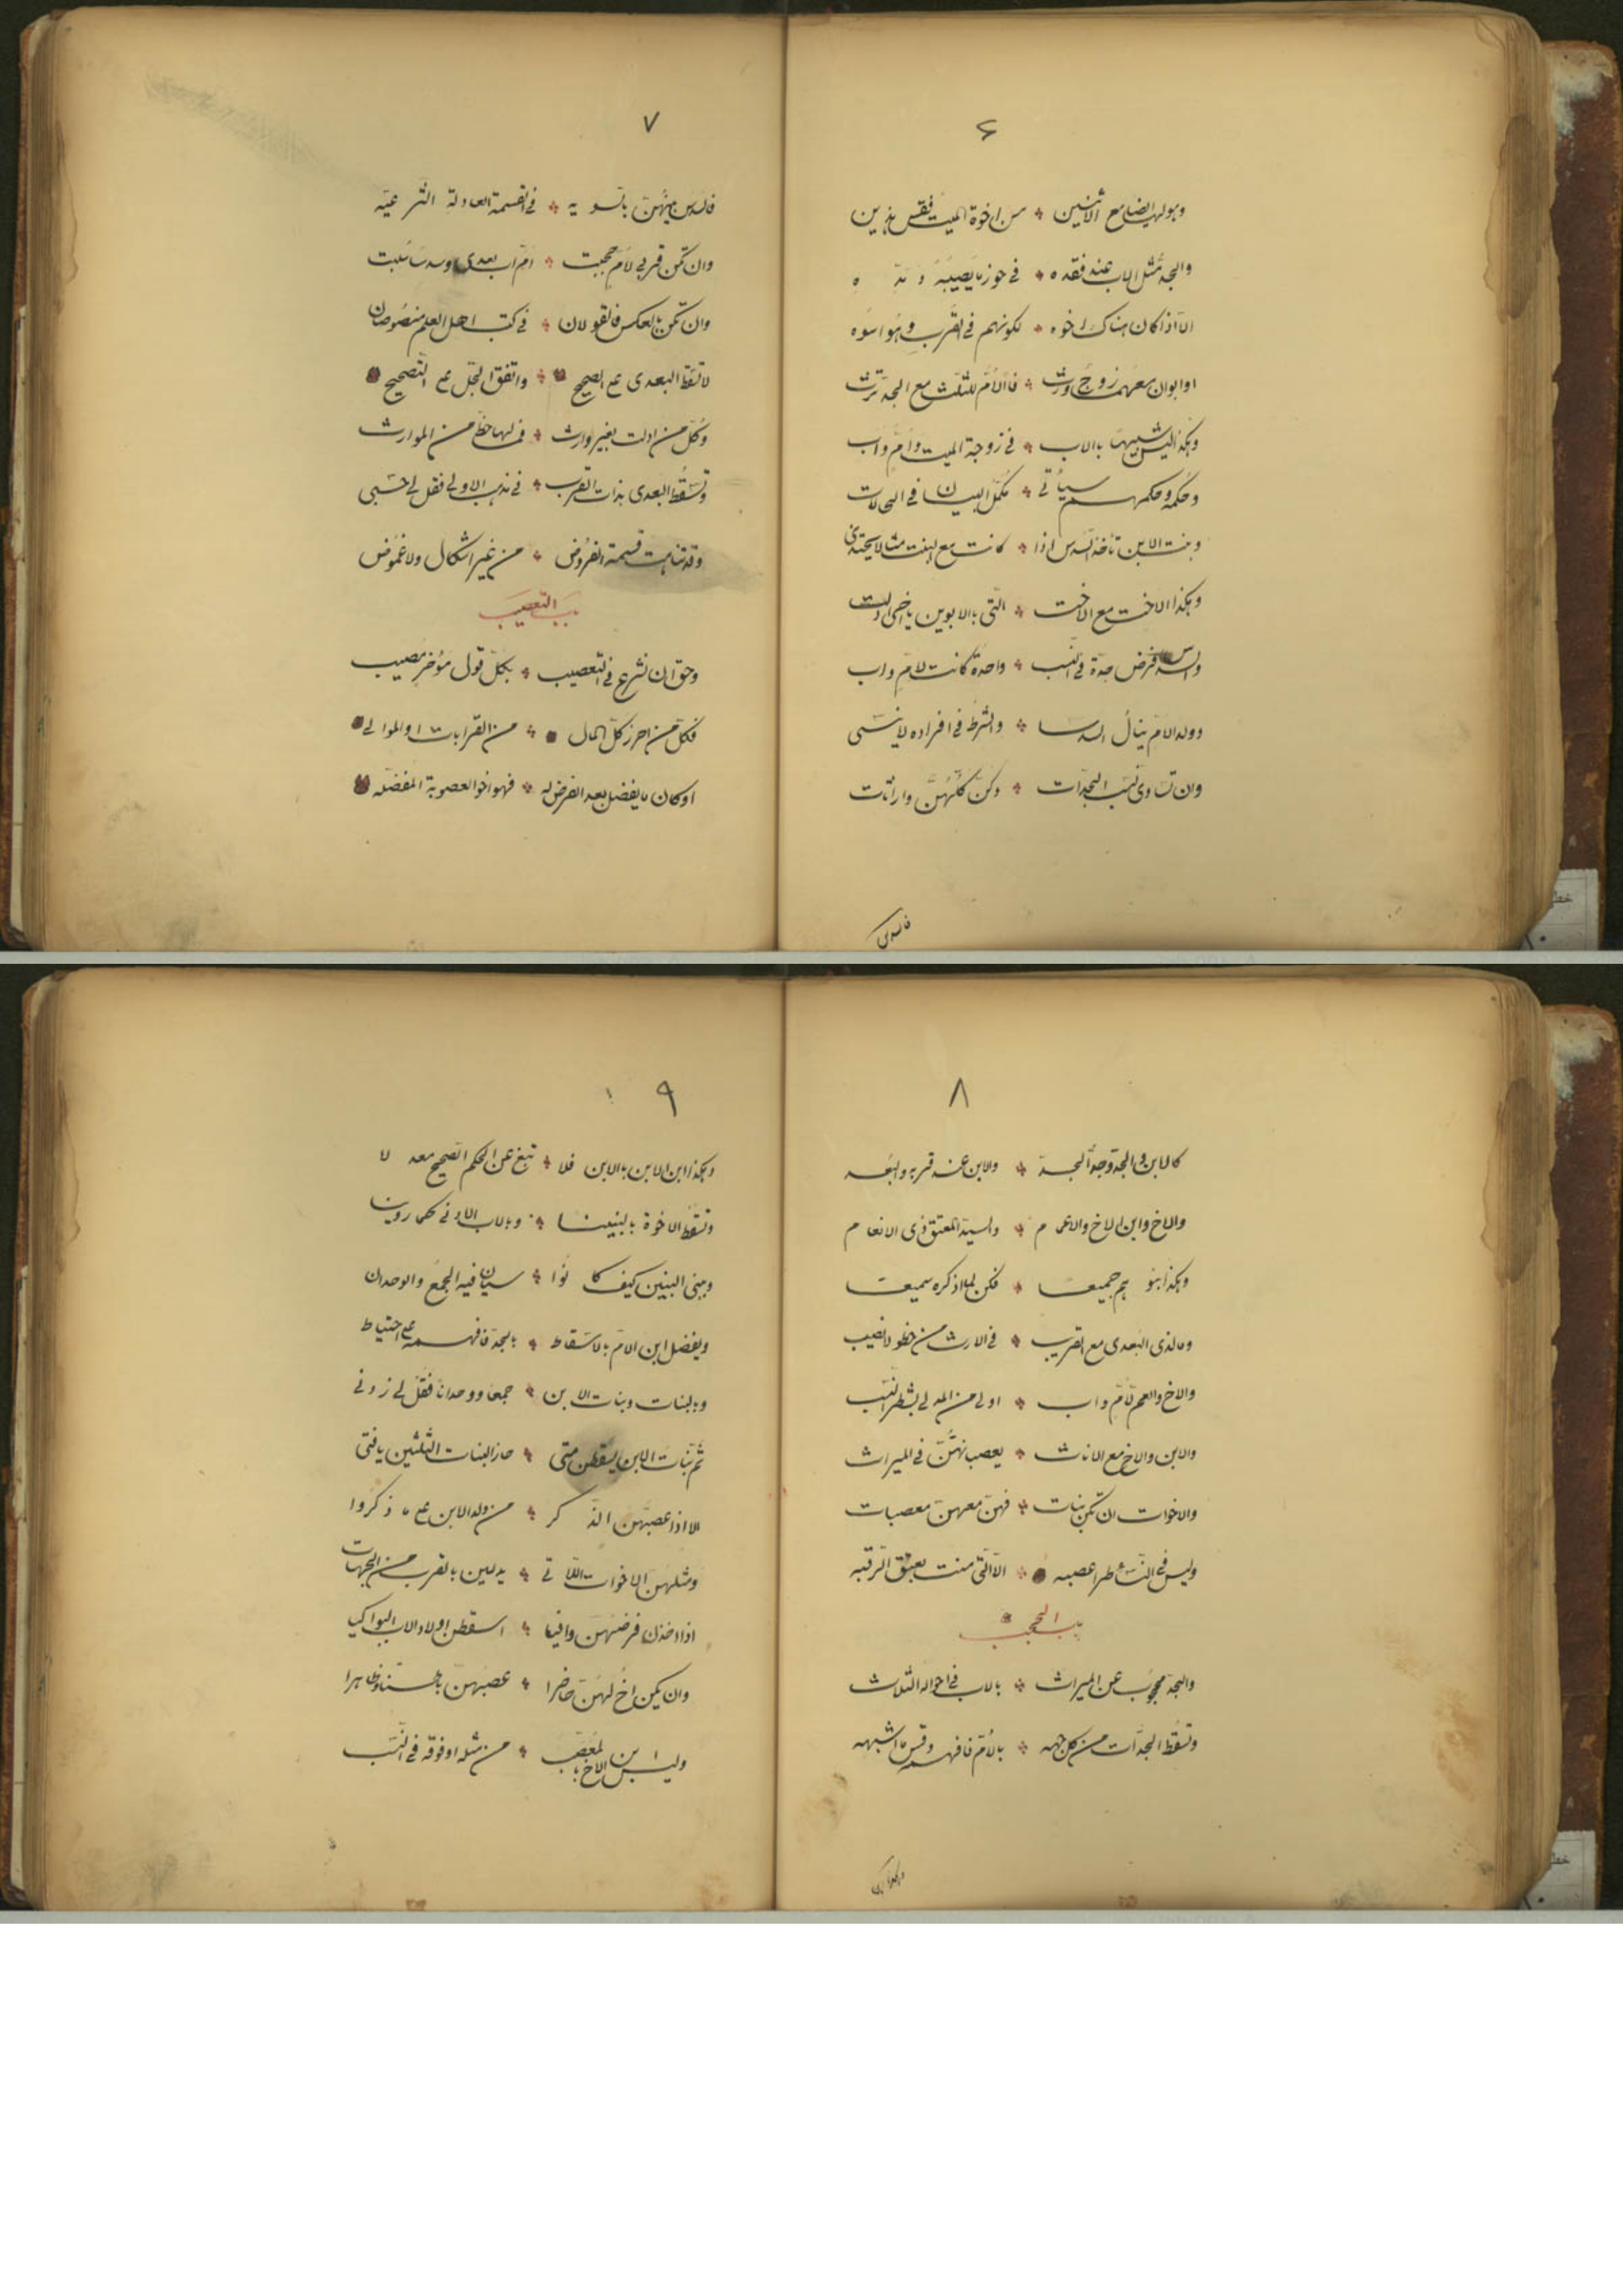 ٦
وهو لها ايضا مع الاثنين ؞ من اخوة الميت فقس هذين
والجد مثل الاب عند فقده ؞ في حوز ما يصيبه و مده
الا اذا كان هناك اخوه ؞ لكونهم في القرب وهو اسوه
او ابوان معهما زوج ورث ؞ فالام للثلث مع الجد ترث
وهكذا ليس شبيها بالاب ؞ في زوجة الميت وام واب
وحكمه وحكمهم سيأتي ؞ مكمل البيان في الحالات
وبنت الابن تأخذ السدس اذا ؞ كانت مع البنت مثالا يحتذى
وهكذا الاخت مع الاخت ؞ التي بالابوين يا اخي ادلت
والسدس فرض جدة في النسب ؞ واحدة كانت لام واب
وولد الام ينال السدسا ؞ والشرط في افراده لا ينسى
وان تساوى نسب الجدات ؞ وكن كلهن وارثات
فالسدس
٧
فالسدس بينهن بالسويه ؞ في القسمة العادلة الشرعيه
وان تكن قربى لام حجبت ؞ ام اب بعدى وسدسا سلبت
وان تكن بالعكس فالقولان ؞ في كتب اهل العلم منصوصان
لا تسقط البعدى على الصحيح ؞ واتفق الجل على التصحيح
وكل من ادلت بغير وارث ؞ فما لها حظ من الموارث
وتسقط البعدى بذات القرب ؞ في المذهب الاولى فقل لي حسبي
وقد تناهت قسمة الفروض ؞ من غير اشكال ولا غموض
باب التعصيب
وحق ان نشرع في التعصيب ؞ بكل قول موخز مصيب
فكل من احرز كل المال ؞ من القرابات او الموالي
او كان ما يفضل بعد الفرض له ؞ فهو اخو العصوبة المفضله
٨
كالاب والجد وجد الجد ؞ والابن عند قربه والبعد
والاخ وابن الاخ والاعمام ؞ والسيد المعتق ذي الانعام
وهكذا بنوهم جميعا ؞ فكن لما اذكره سميعا
وما لذى البعدى مع القريب ؞ في الارث من حظ ولا نصيب
والاخ والعم لام واب ؞ اولى من المدلي بشطر النسب
والابن والاخ مع الاناث ؞ يعصبانهن في الميراث
والاخوات ان تكن بنات ؞ فهن معهن معصبات
وليس في النساء طرا عصبه ؞ الا التي منت بعتق الرقبه
باب الحجب
والجد محجوب عن الميراث ؞ بالاب في احواله الثلاث
وتسقط الجدات من كل جهه ؞ بالام فافهمه وقس ما اشبهه
وهكذا ابن
٩
وهكذا ابن الابن بالابن فلا ؞ تبغ عن الحكم الصحيح معدلا
وتسقط الاخوة بالبنينا ؞ وبالاب الادنى كما روينا
وببني البنين كيف كانوا ؞ سيان فيه الجمع والوحدان
ويفضل ابن الام بالاسقاط ؞ بالجد فافهمه على احتياط
وبالبنات وبنات الابن ؞ جمعا ووحدانا فقل لي زدني
ثم بنات الابن يسقطن متى ؞ حاز البنات الثلثين يا فتى
الا اذا عصبهن الذكر ؞ من ولد الابن على ما ذكروا
ومثلهن الاخوات اللاتي ؞ يدلين بالقرب من الجهات
اذا اخذن فرضهن وافيا ؞ اسقطن اولاد الاب البواكيا
وان يكن اخ لهن حاضرا ؞ عصبهن باطنا وظاهرا
وليس ابن الاخ بالمعصب ؞ من مثله او فوقه في النسب